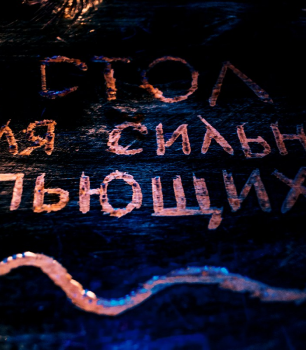 СТОЛ
ля сильн
ьющих